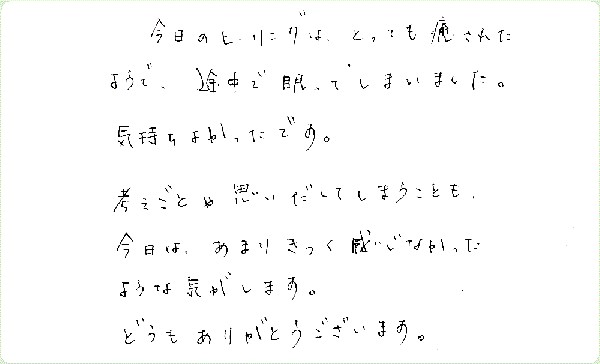 今日のヒーリングは、とっても癒された
ようで、途中で眠ってしまいました。
気持ちよかったです。
考えごとや思いだしてしまうことも、
今日は、あまりきつく感じなかった
ような気がします。
どうもありがとうございます。